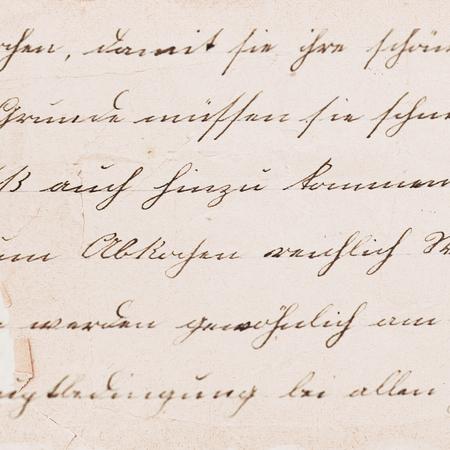 chen, damit sie ihre schön
Grunde müssen sie schne
ß auch hinzu kommen
um Abkochen reichlich
werden gewöhnlich am
auptbedingung bei allen